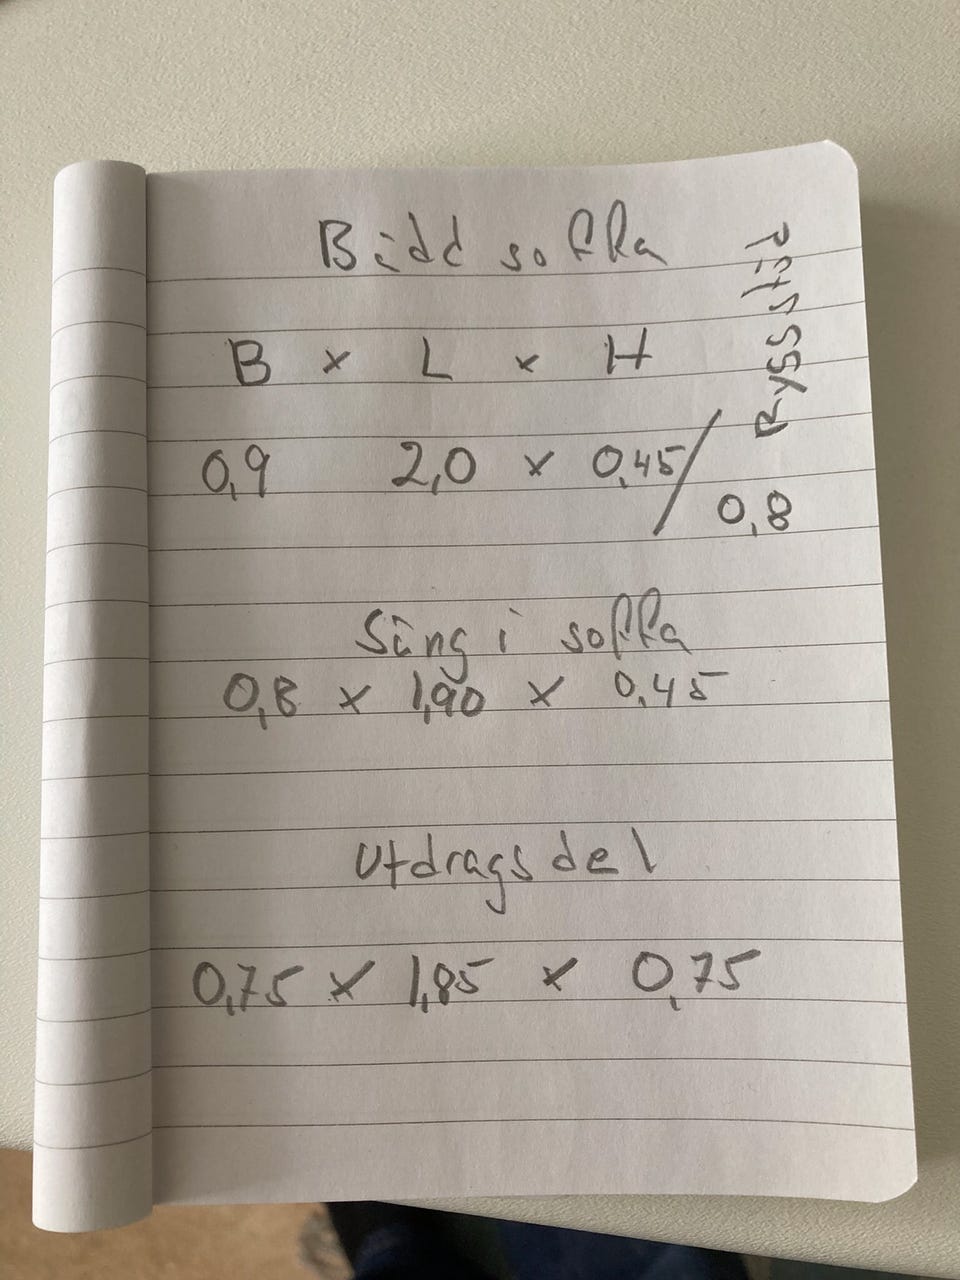 Bädd soffa
Ryggstöd
B x L x H
0,9 2,0 x 0,45/
0,8
Säng i soffa
0,8 x 1,90 x 0,45
Utdragsdel
0,75 x 1,85 x 0,75